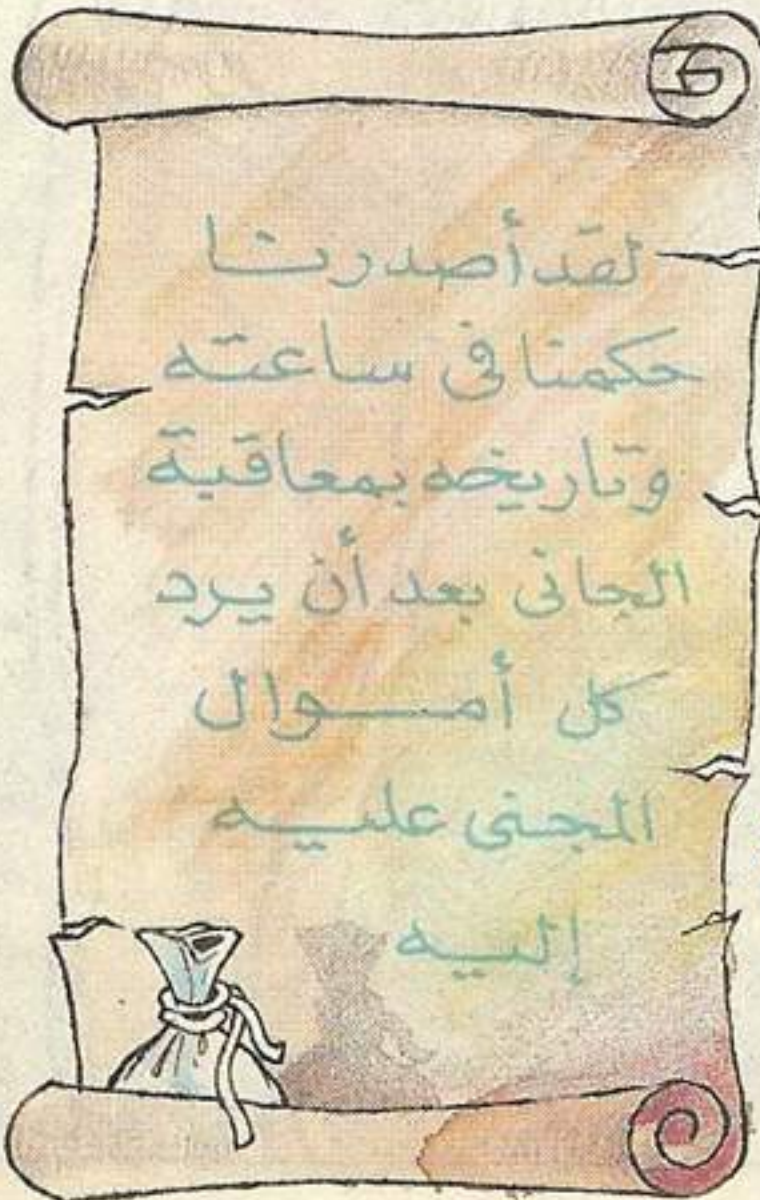 لقد أصدرنا
حكمنا فى ساعته
وتاريخه بمعاقبة
الجانى بعد أن يرد
كل أمــوال
المجنى عليــه
إليــه